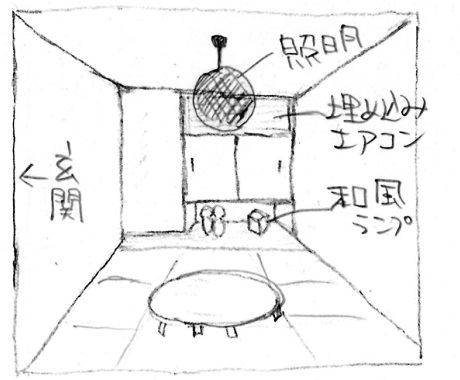 照明
埋め込み
エアコン
和風
ランプ
←玄関